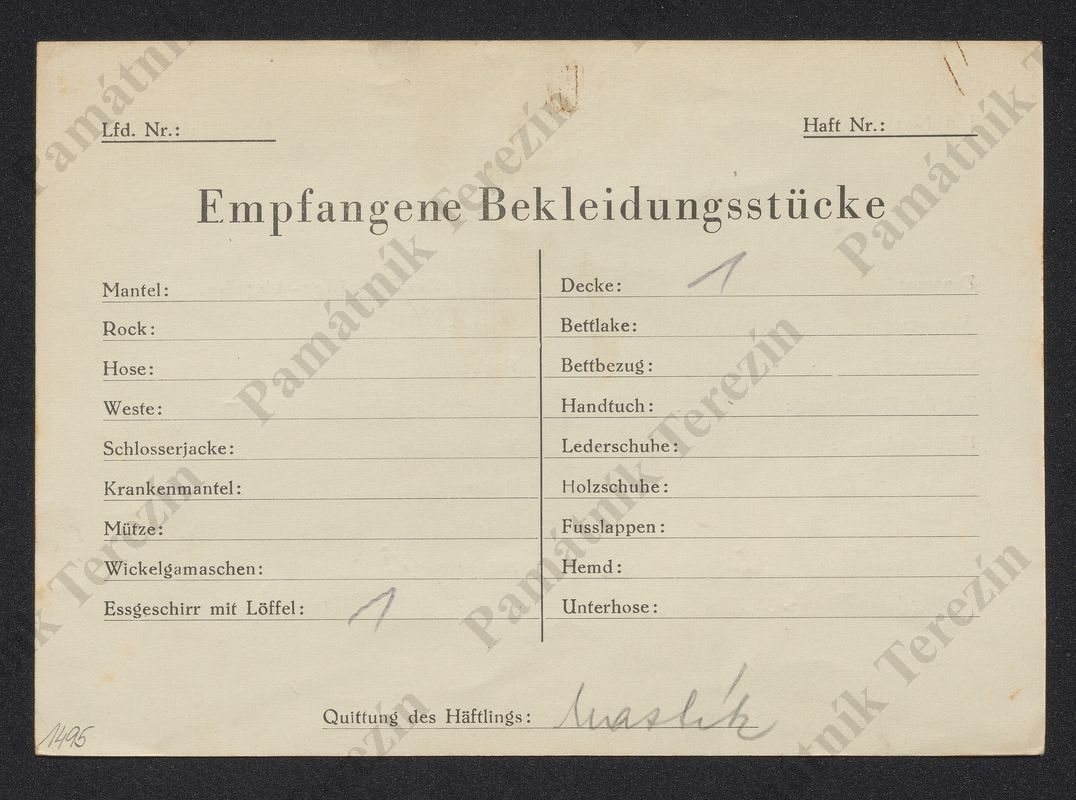 Lfd. Nr.:
Haft Nr.:
Empfangene Bekleidungsstücke
Mantel:
Rock:
Hose:
Weste:
Schlosserjacke:
Krankenmantel:
Mütze:
Wickelgamaschen:
Essgeschirr mit Löffel: 1
Decke: 1
Bettlake:
Bettbezug:
Handtuch:
Lederschuhe:
Holzschuhe:
Fusslappen:
Hemd:
Unterhose:
Quittung des Häftlings:
1495
Památník Terezín